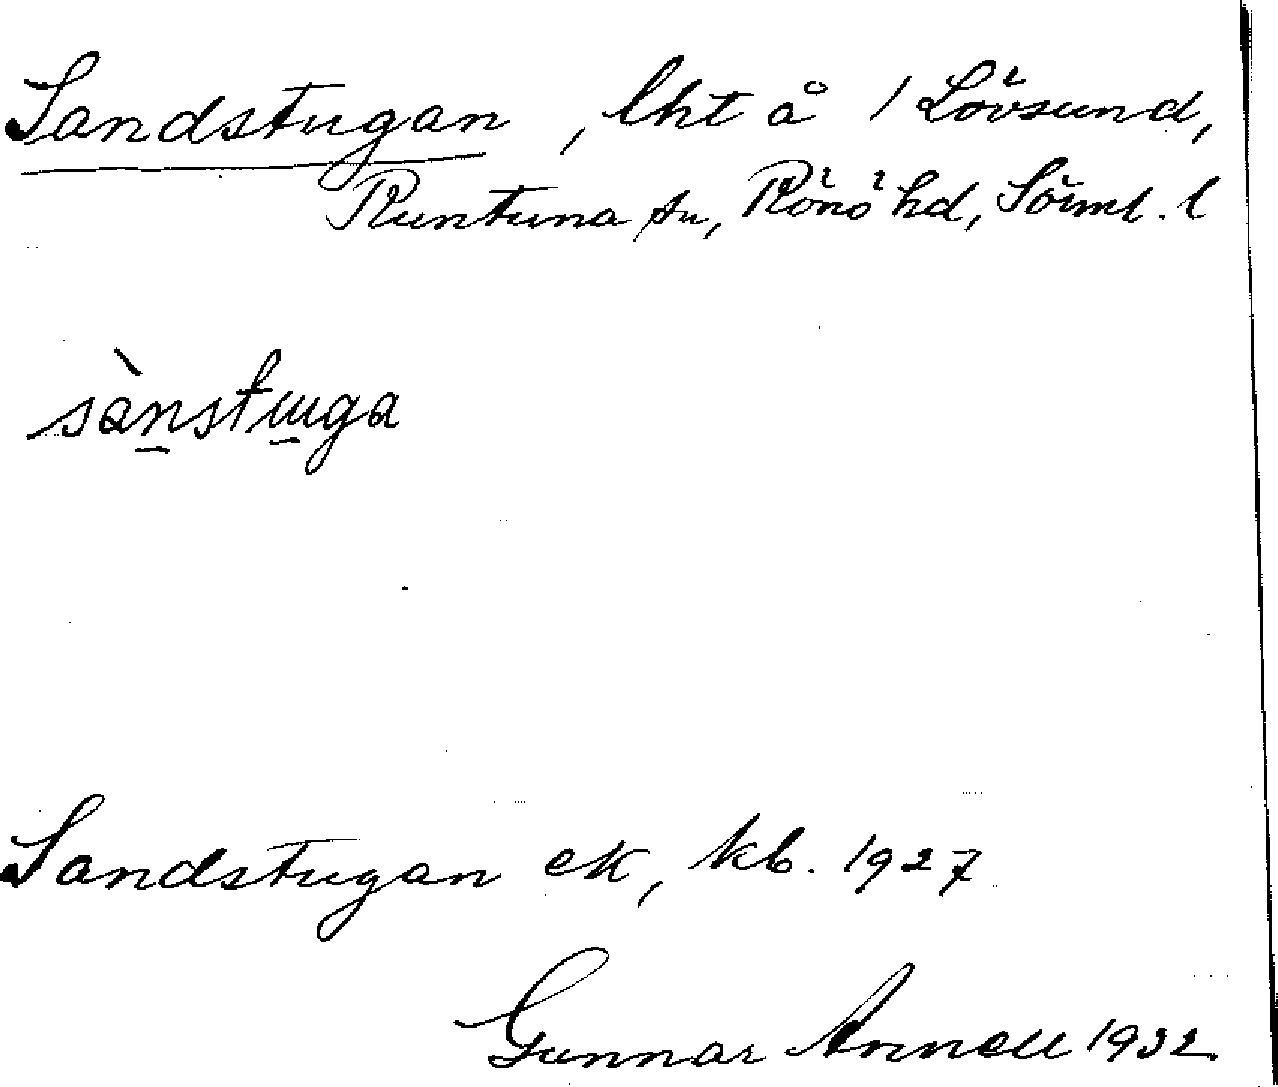 Sandstugan, lht å 1 Lövsund,
Runtuna sn, Rönö hd, Sörml. l
sànstɯga
Sandstugan ek, kb. 1927
Gunnar Annell 1932